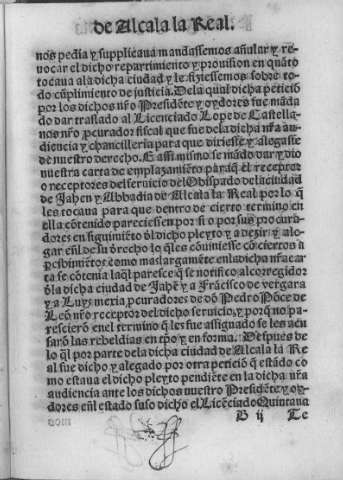 de Alcala la Real.
nos pedia y supplicaua mandassemos anular y re-
uocar el dicho repartimiento y prouision en quãto
tocaua ala dicha ciudad y le fiziessemos sobre to-
do cũplimiento de justicia. Dela qual dicha peticiõ
por los dichos nr̃o Presidẽte y oydores fue mãda
do dar traslado al Licenciado Lope de Castella
nos nr̃o ꝓcurador fiscal que fue dela dicha nr̃a au-
diencia y chancilleria para que dixesse y alegasse
de nuestro derecho. E assi mismo se mãdo dar y dio
nuestra carta de emplazamiẽto para q̃ el receptor
o receptores del seruicio del Obispado dela ciudad
de Jahen y Abbadia de Alcala la Real por lo q̃
les tocaua para que dentro de cierto termino en
ella cõtenido pareciessen por si o por sus procura
dores en seguimiẽto d̃l dicho pleyto y a dezir y ale
gar eñl de su derecho lo q̃ les cõuiniesse cõ ciertos a
pcibimiẽtos como mas largamẽte enla dicha nr̃a car
ta se cõtenia la q̃l paresce q̃ se notifico al corregidor
d̃la dicha ciudad de Jahẽ y a Frãcisco de vergara
y a Luys meria ꝓcuradores de dõ Pedro Põce de
Leõ nr̃o receptor del dicho seruicio y porq̃ no pa-
rescierõ enel termino q̃ les fue assignado se les acu
sarõ las rebeldias en tp̃o y en forma. Despues de
lo q̃l por parte dela dicha ciudad de Alcala la Re
al fue dicho y alegado por otra peticiõ q̃ estãdo co
mo estaua el dicho pleyto pendiẽte en la dicha nr̃a
audiencia ante los dichos nuestro Presidẽte y oy-
dores eñl estado suso dicho el Licẽciado Quintana
B ij Te